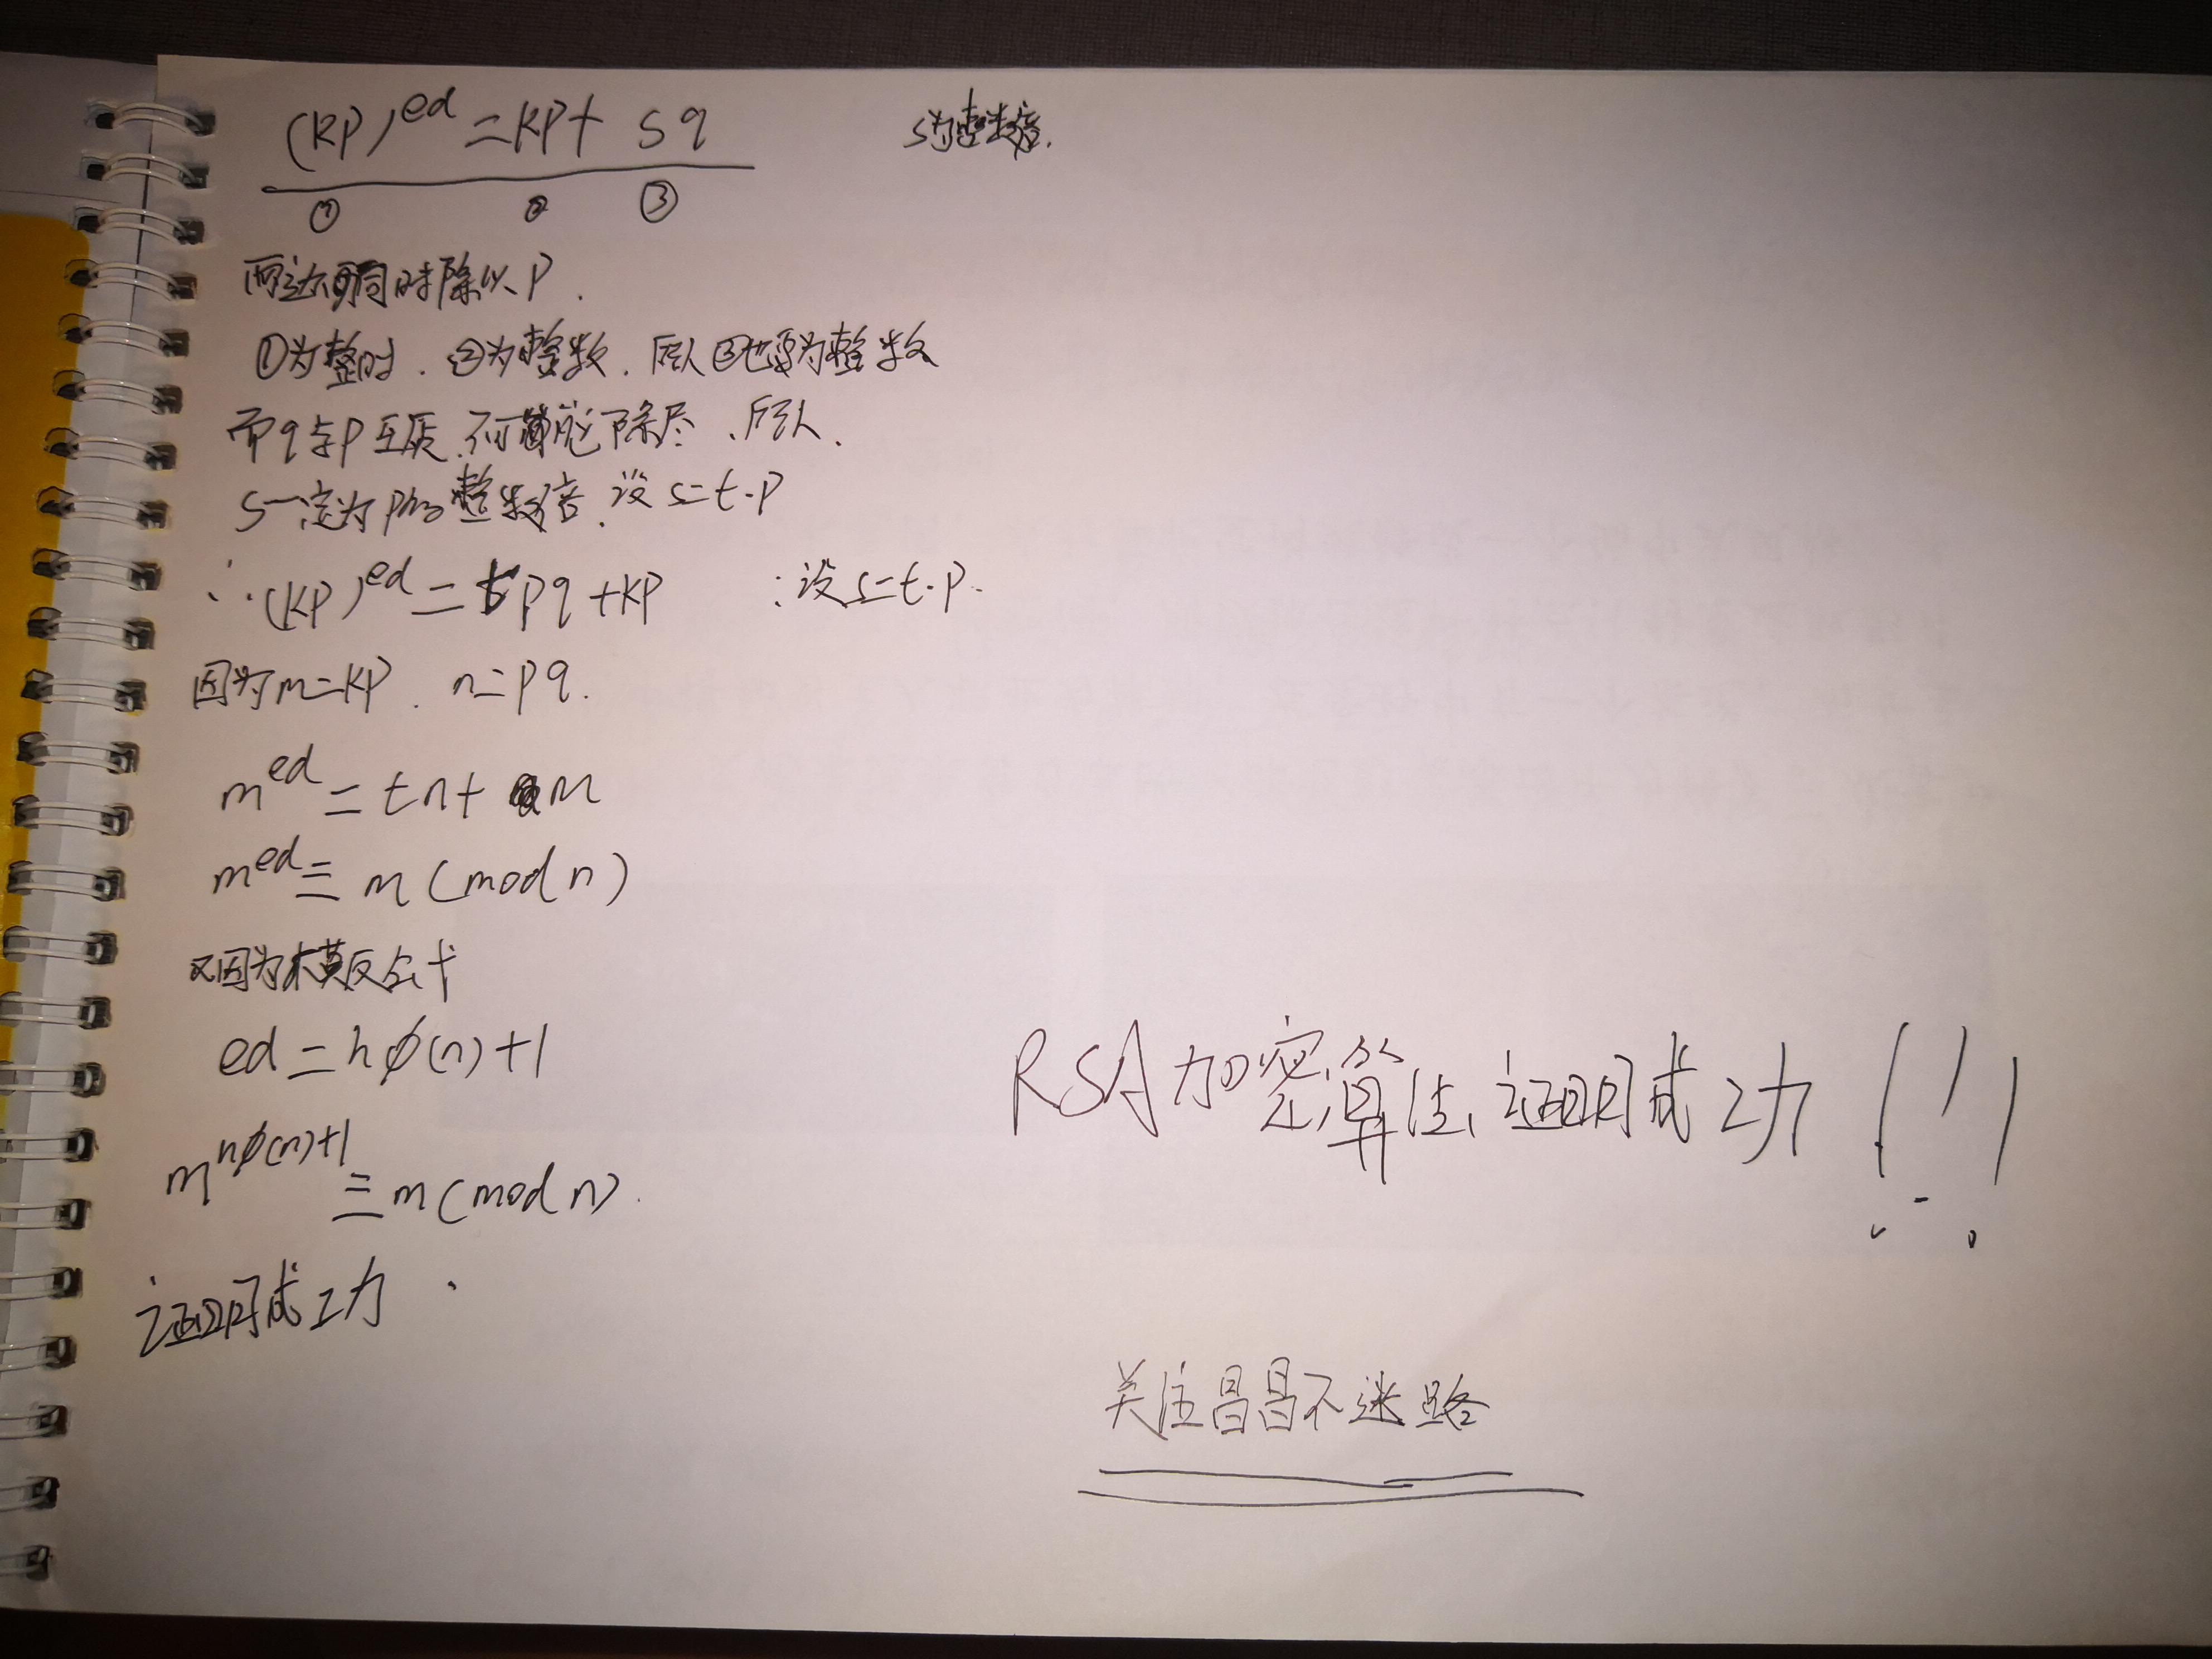 (kp)^ed = kp + sq    s为整数倍.
① ② ③
两边同时除以p.
①为整时.②为整数.所以③也要为整数
而q与p互质.不可能除尽.所以.
s一定为p的整数倍.设s=t·p
∴(kp)^ed = tpq+kp    :设s=t·p.
因为m=kp. n=pq.
m^ed = tn+m
m^ed ≡ m (mod n)
又因为模反公式
ed=hφ(n)+1
m^hφ(n)+1 ≡ m (mod n).
证明成功.
RSA加密算法证明成功!!!
关注昌昌不迷路